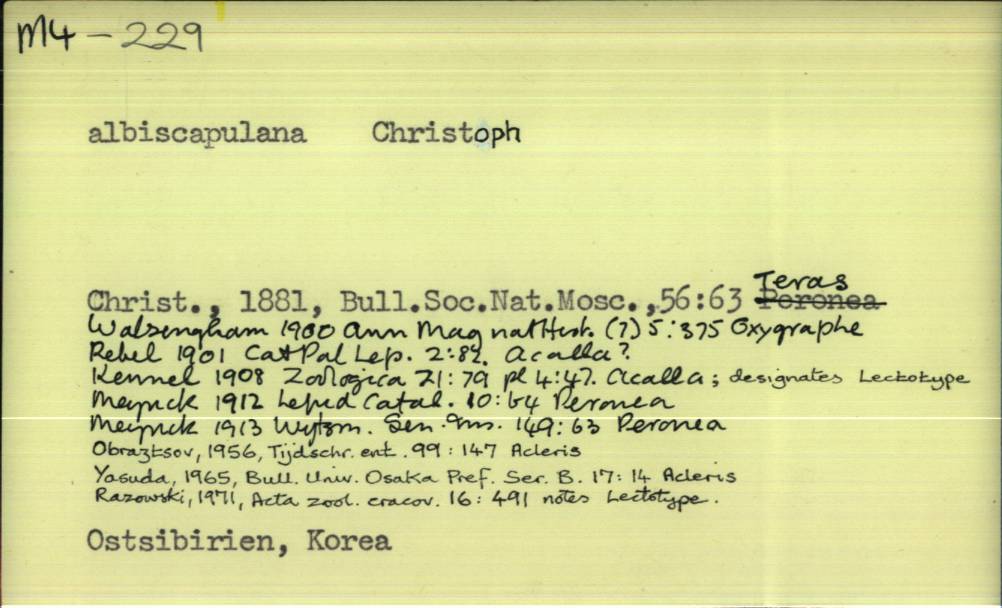 M4-229
albiscapulana Christoph
Teras
Christ., 1881, Bull.Soc.Nat.Mosc.,56:63 Peronea
Walsengham 1900 Ann Mag nat Hist. (7) 5:375 Oxygraphe
Rebel 1901 Cat Pal Lep. 2:82. Acalla?
Kennel 1908 Zoologica 21:79 pl 4:47. Acalla; designates Lectotype
Meyrick 1912 Lepid Catal. 10:64 Peronea
Meyrick 1913 Wytsm. Gen. Ins. 149:63 Peronea
Obraztsov, 1956, Tijdschr. ent. 99:147 Acleris
Yasuda, 1965, Bull. Univ. Osaka Pref. Ser. B. 17:14 Acleris
Razowski, 1971, Acta zool. cracov. 16:491 notes Lectotype.
Ostsibirien, Korea